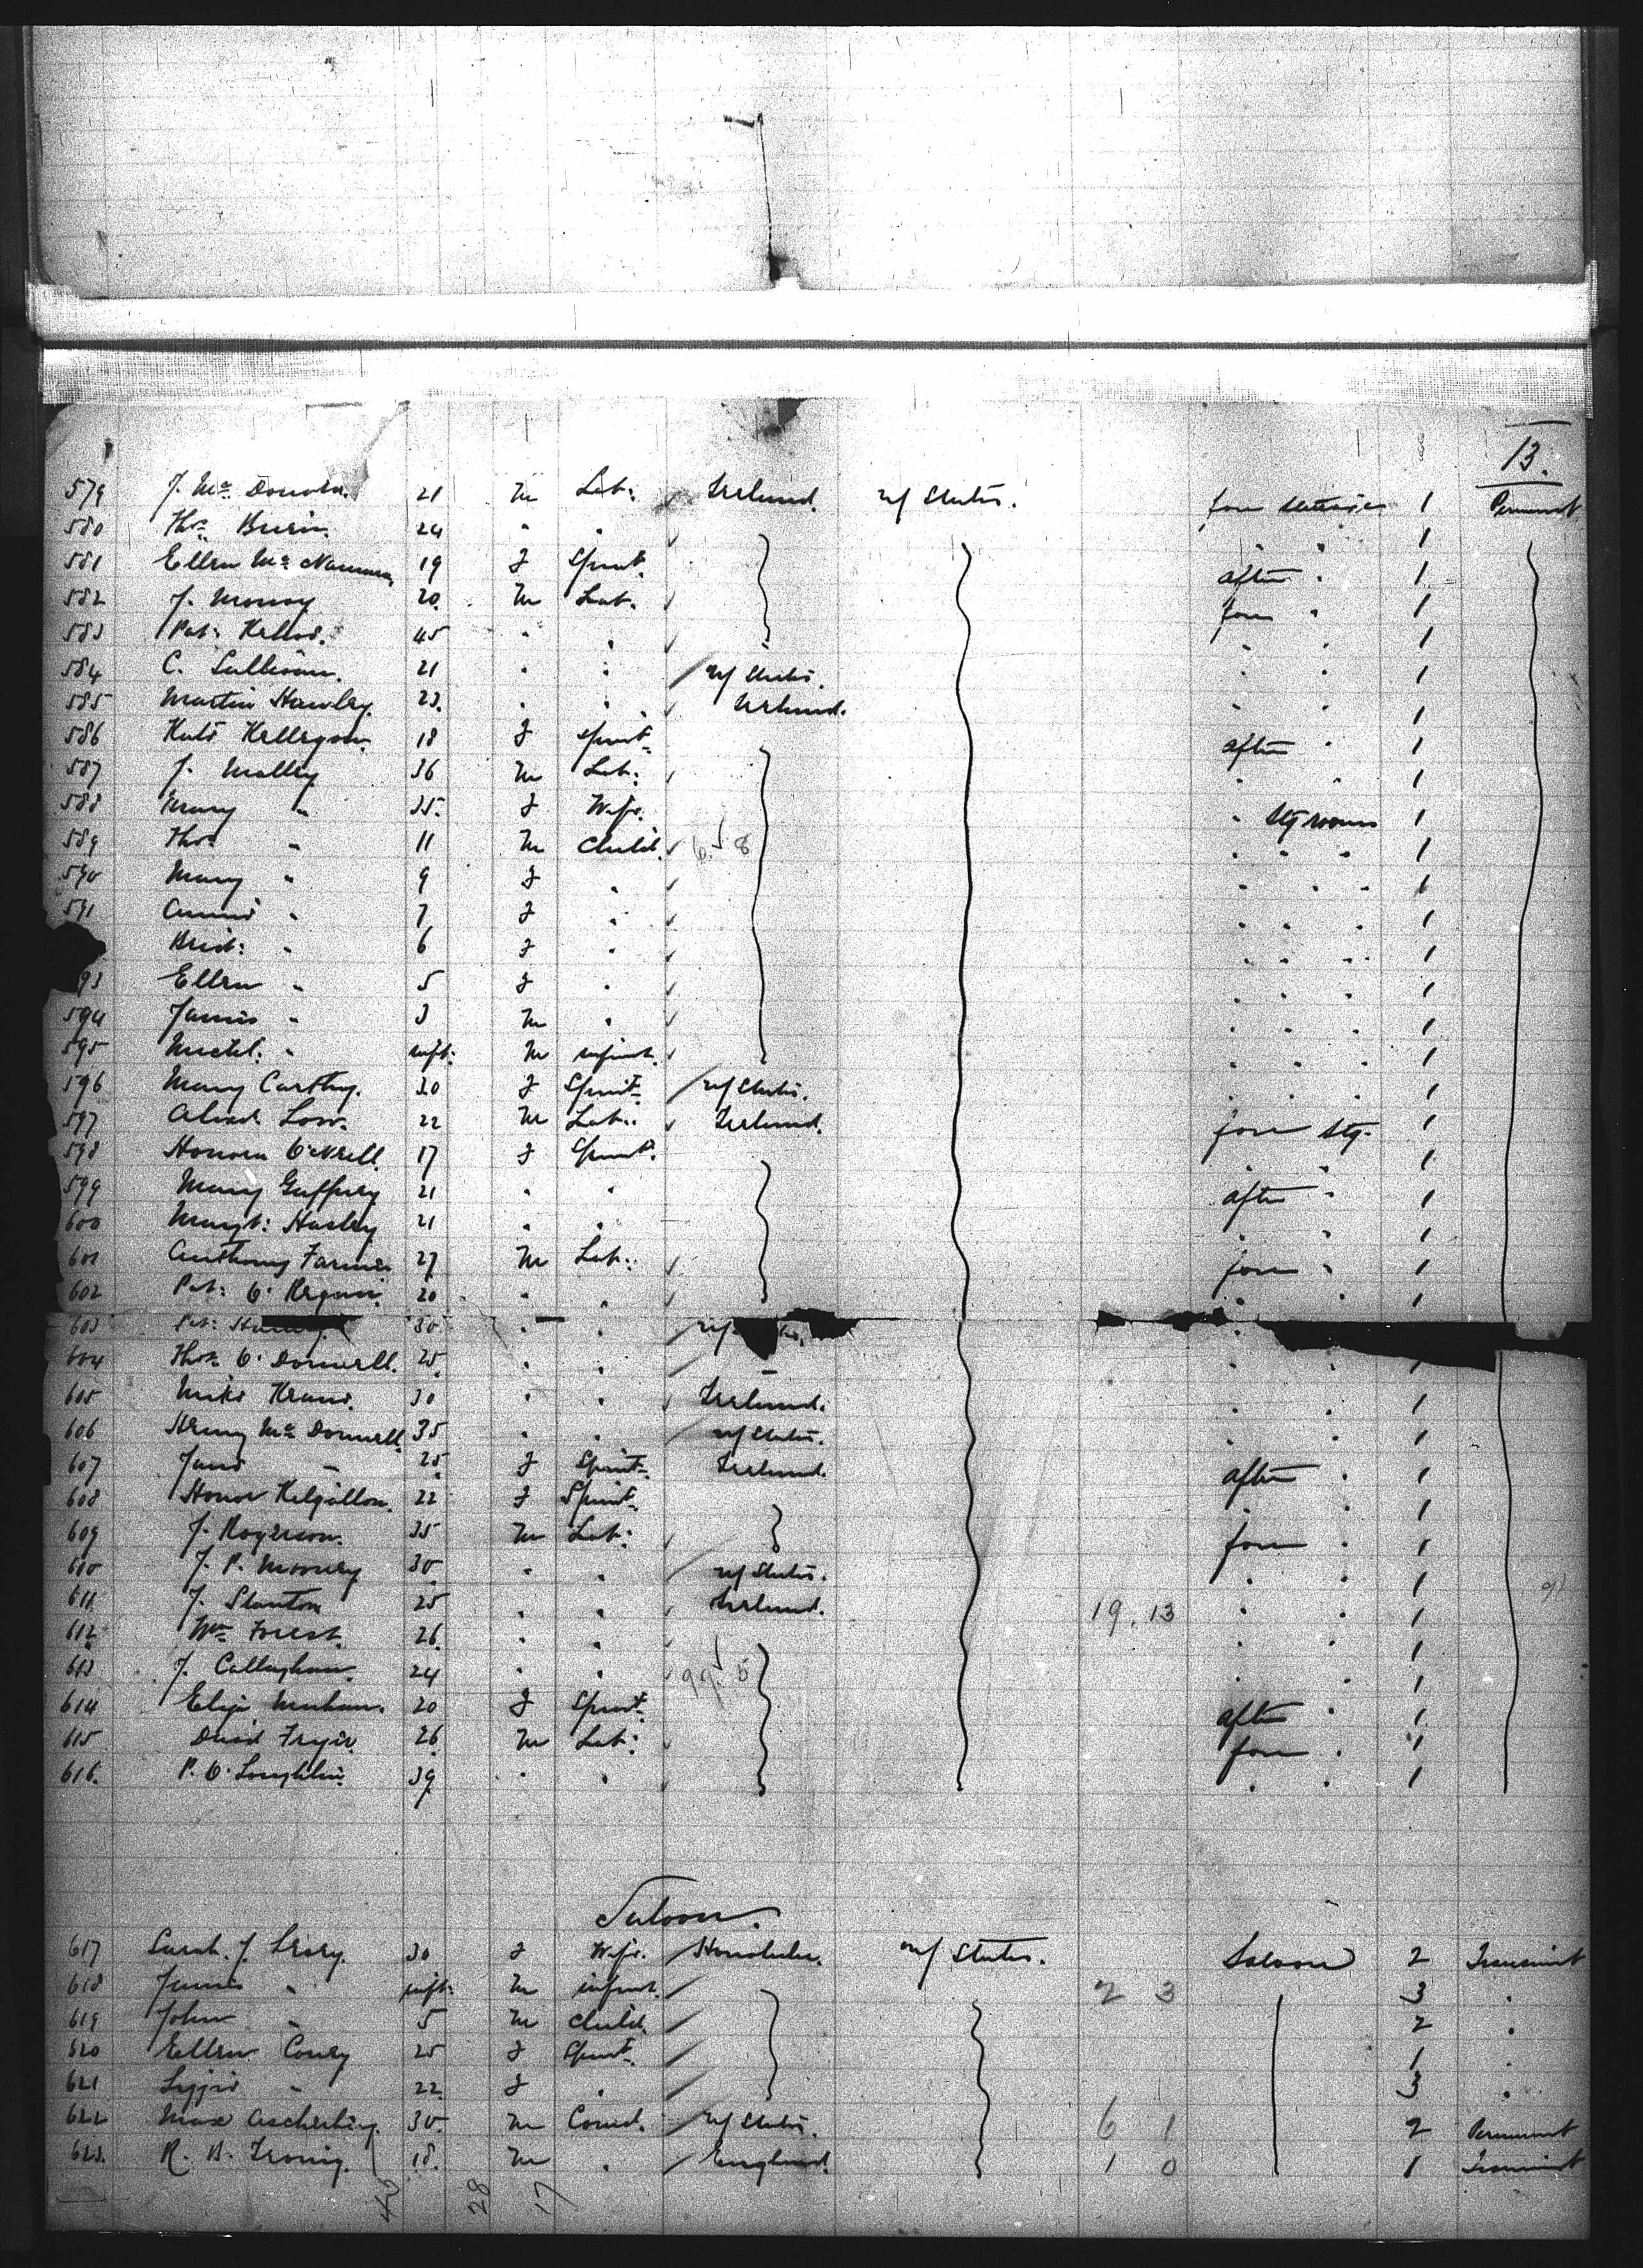 13.
579 J. Mc Donold. 21 m Lab: Ireland. U/States. fore steerage 1 Permanent
580 Thos. 24 " " " " 1
581 Ellen Mc Namara 19 f Spinst. after " 1
582 J. 20. m Lab. fore " 1
583 Pat: 45 " " " " 1
584 C. Sullivan. 21 " " U/States. " " 1
585 Martin Hawley. 23. " " Ireland. " " 1
586 Kate 18 f spinst. after " 1
587 J. Malley 36 m Lab: " " 1
588 Mary " 35. f Wife. " stg rooms 1
589 Thos " 11 m child. 6 8 " " " 1
590 Mary " 9 f " " " " 1
591 Annie " 7 f " " " " 1
Brid: " 6 f " " " " 1
93 Ellen " 5 f " " " " 1
594 James " 3 m " " " " 1
595 Michl. " inft: m infant. " " " 1
596 Mary Carthy. 30 f Spinst. U/States. " " " 1
597 22 m Lab: Ireland. fore stg. 1
598 Honora O'Neill. 17 f Spinst. " " 1
599 Mary 21 " " after " 1
600 Margt: 21 " " " " 1
601 Anthony Farmer 27 m Lab: fore " 1
602 Pat: O' 20 " " " " 1
603 Pat: 30 " " " "
604 Thos. O'Donnell. 25 " " " " 1
605 Mike 30 " " Ireland. " " 1
606 Henry Mc Donnell 35 " " U/States. " " 1
607 Jane " 25 f Spinst. Ireland. after " 1
608 Honor Kilgallon. 22 f Spinst. " " 1
609 J. Rogerson. 35 m Lab: fore " 1
610 J. P. Mooney 30 " " U/States. " " 1
611. J. Stanton 25 " " Ireland. 19.13 " " 1
612 Wm Forest. 26 " " " " 1
613 J. Callaghan 24 " " 99 5 " " 1
614 Eliza 20 f Spinst. after " 1
615 David 26 m Lab: fore " 1
616. P. O'Loughlin 39 " " " " 1
Saloon.
617 Sarah. J. Leary. 30 f Wife. Honolulu. U/States. Saloon 2 Transient
618 James " inft: m infant. 2 3 3 "
619 John " 5 m child. 2 "
620 Ellen 25 f Spinst. 1 "
621 Lizzie " 22 f " 3 "
622 Max 30 m Comcl. U/States. 6 1 2 Permanent
623. R. B. Irving. 18. m " England. 1 0 1 Transient
28 17